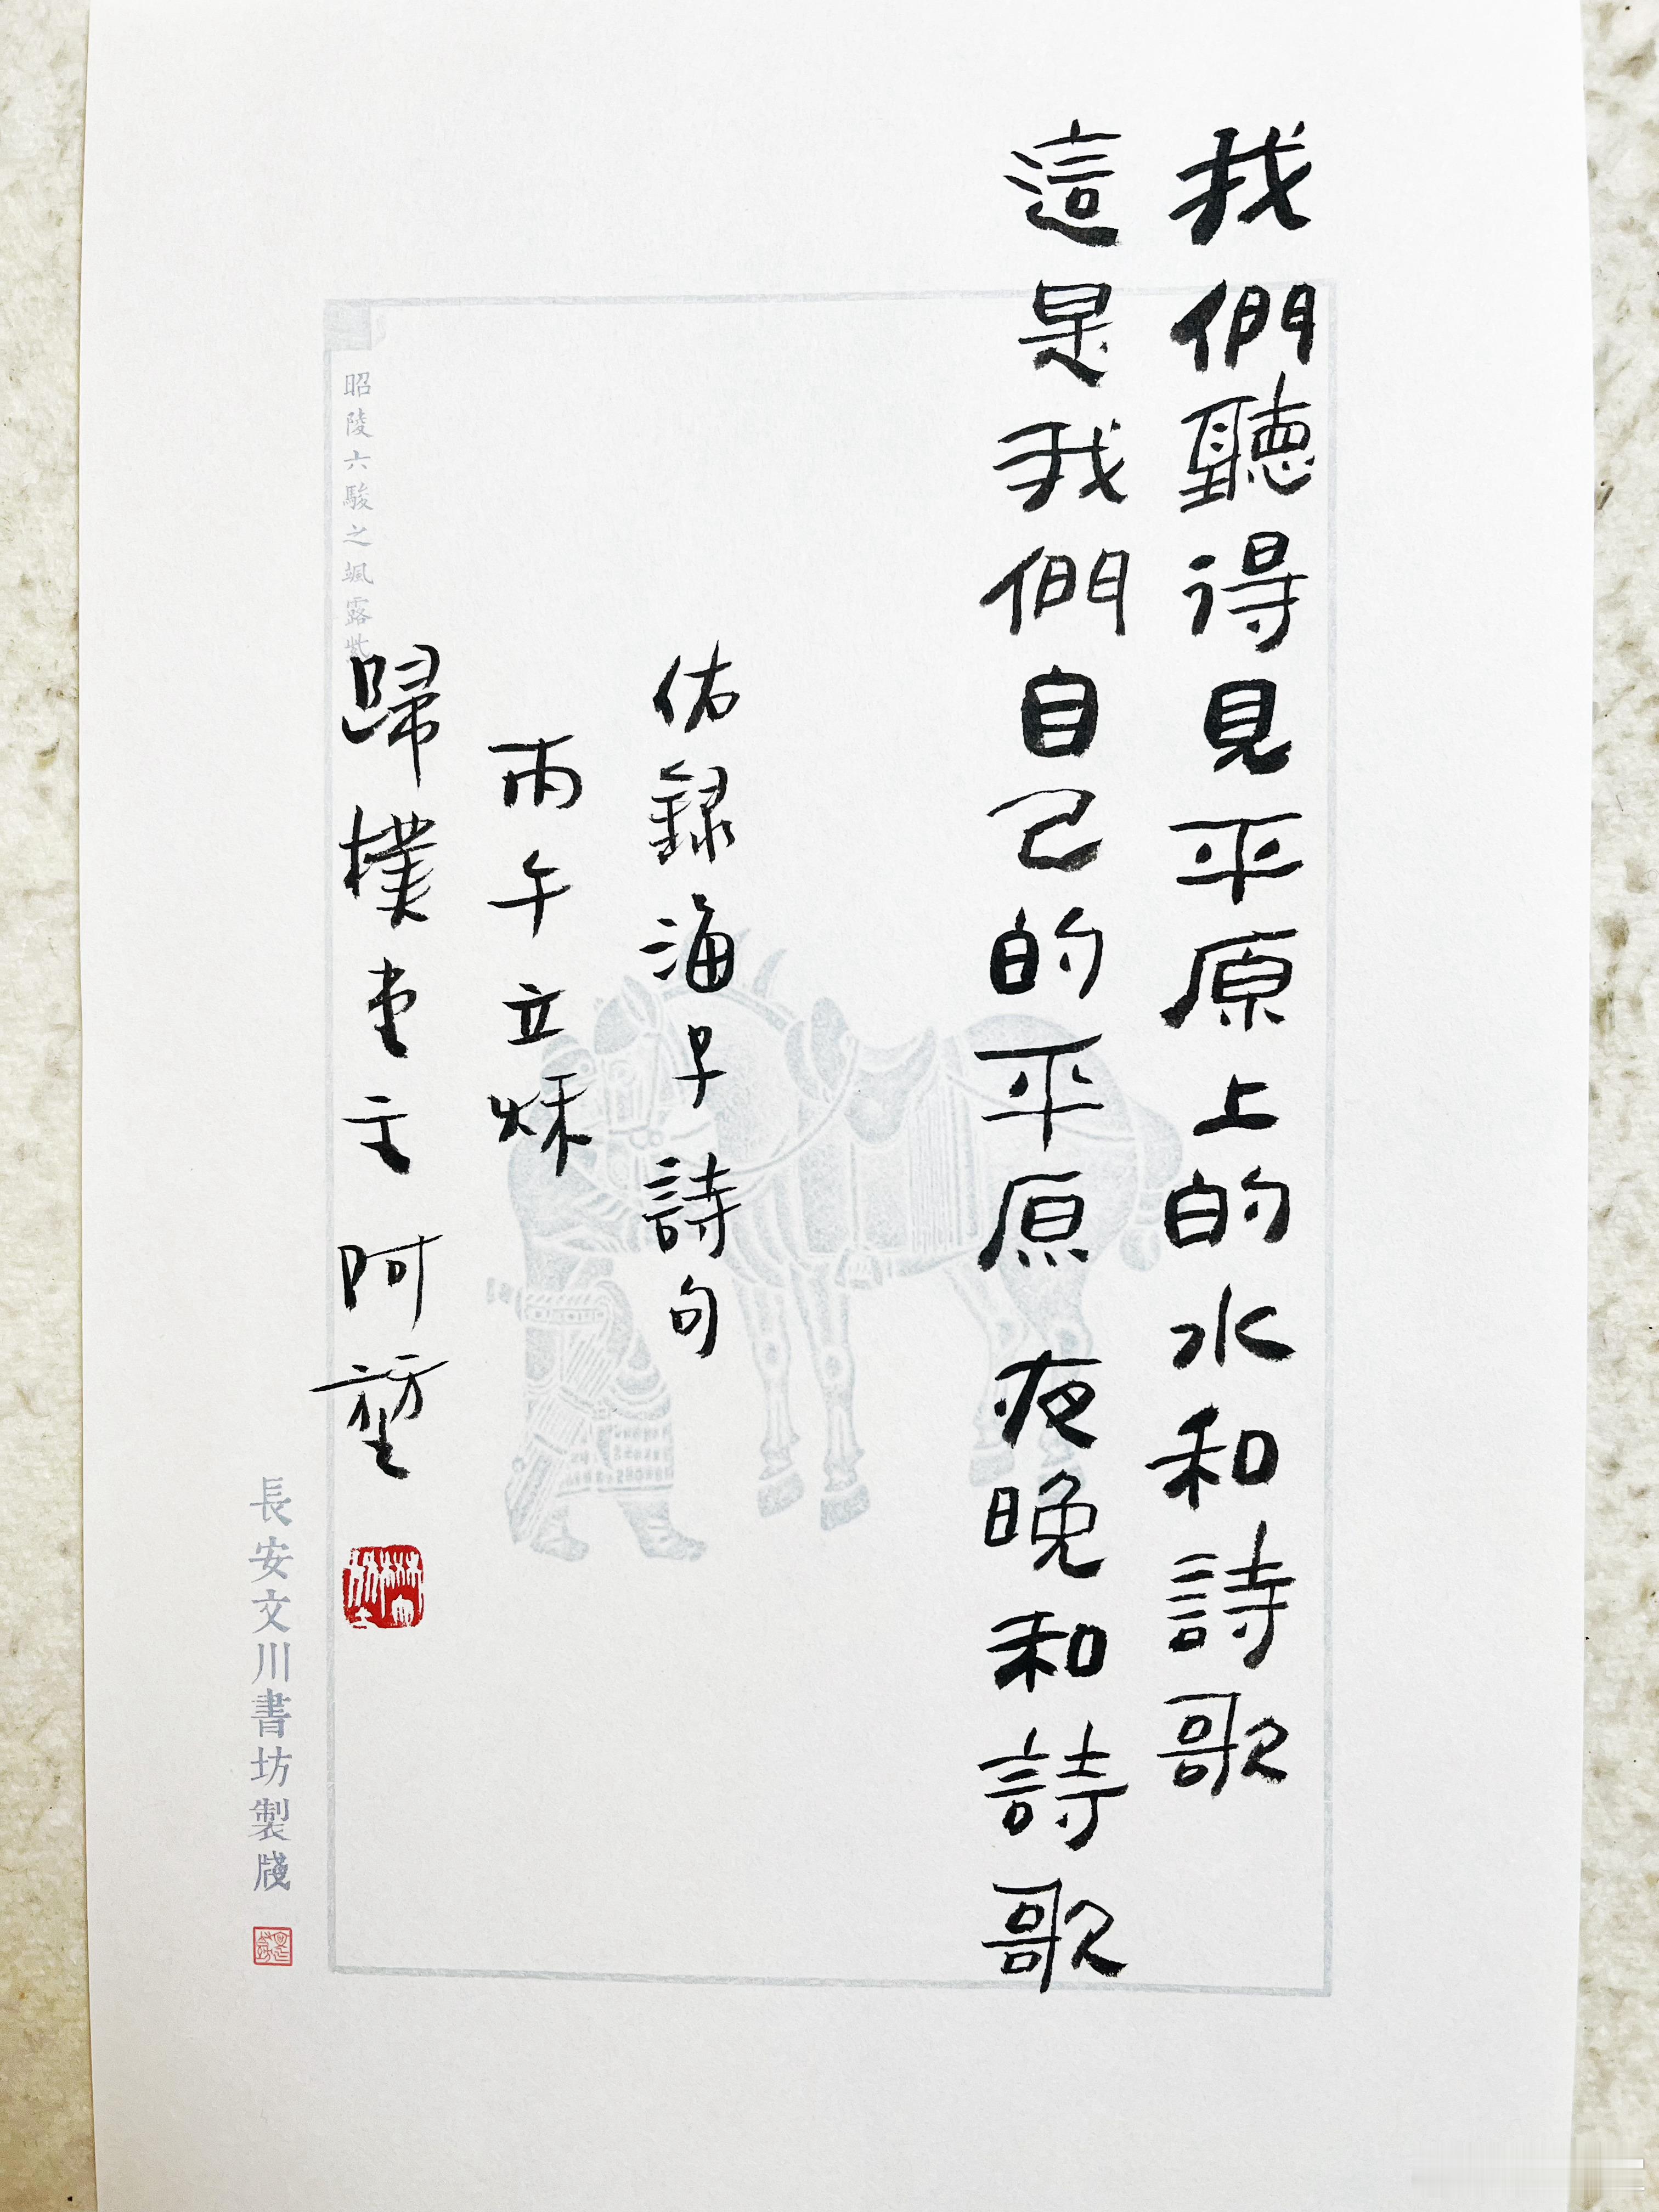 我們聽得見平原上的水和詩歌
這是我們自己的平原 夜晚和詩歌
佑錄海子詩句
丙午立秌
歸樸堂主 阿堃
昭陵六駿之颯露紫
長安文川書坊製牋